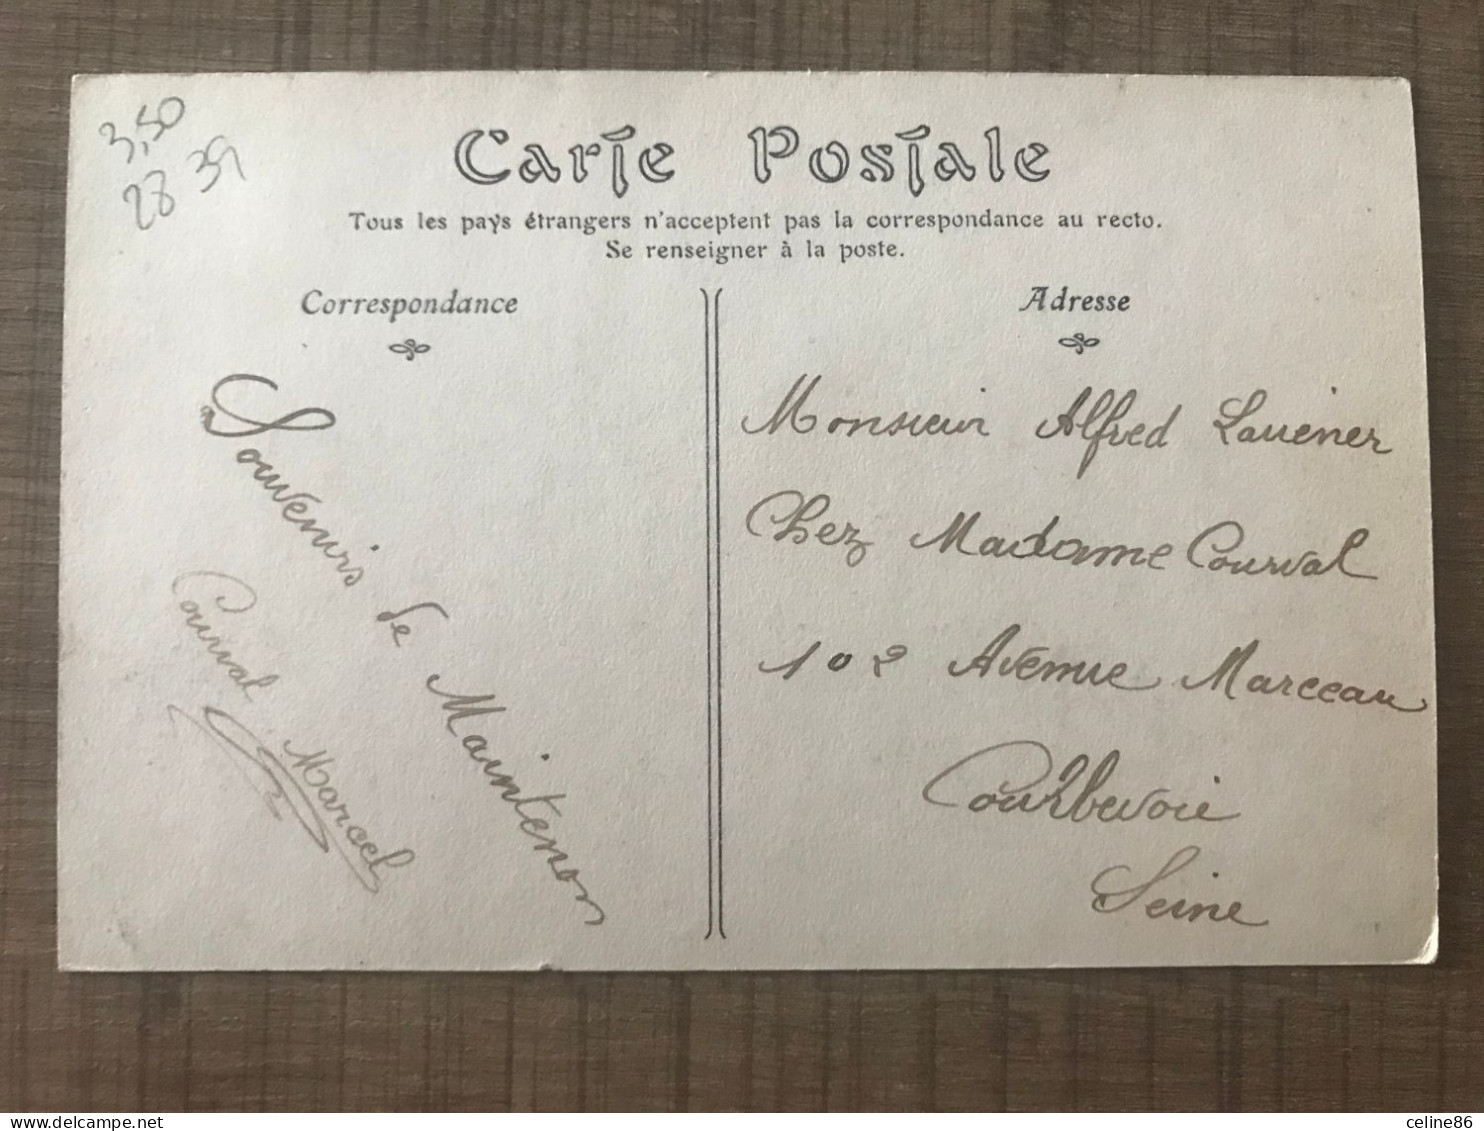 3,50
28 39
Carte Postale
Tous les pays étrangers n'acceptent pas la correspondance au recto.
Se renseigner à la poste.
Correspondance
Souvenirs de Maintenon
Courval Marcel
Adresse
Monsieur Alfred Lauener
Chez Madame Courval
102 Avenue Marceau
Courbevoie
Seine
delcampe.net
celine86